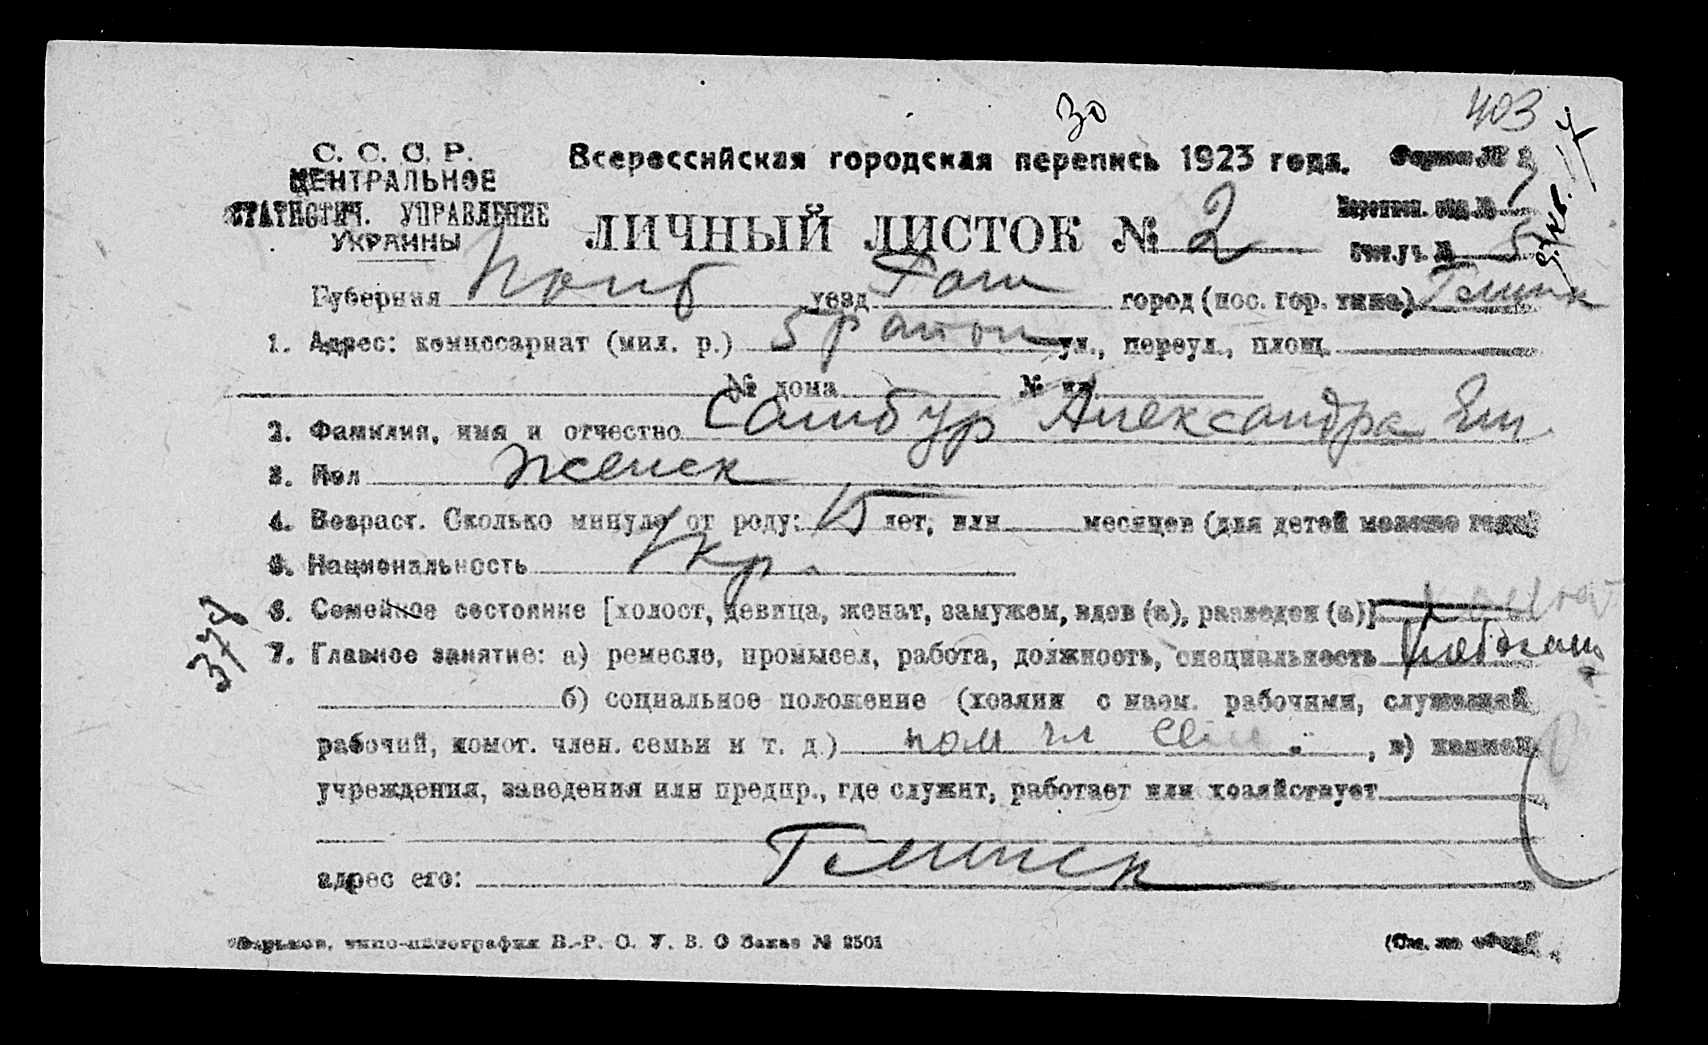 30
403
С. С. С. Р.
ЦЕНТРАЛЬНОЕ
СТАТИСТИЧ. УПРАВЛЕНИЕ
УКРАИНЫ
Всероссийская городская перепись 1923 года.
ЛИЧНЫЙ ЛИСТОК № 2
Счет.уч. № 5
Губерния уезд город (пос. гор. типа)
1. Адрес: комиссариат (мил. р.) 5 район ул., переул., площ.
№ дома № кв.
2. Фамилия, имя и отчество Самбур Александра
3. Пол женск
4. Возраст. Сколько минуло от роду: 15 лет, или месяцев (для детей моложе года)
5. Национальность Укр.
6. Семейное состояние [холост, девица, женат, замужем, вдов (а), разведен (а)]
7. Главное занятие: а) ремесло, промысел, работа, должность, специальность
б) социальное положение (хозяин с наем. рабочими, служащий
рабочий, помог. член. семьи и т. д.) пом чл , в) наимен.
учреждения, заведения или предпр., где служит, работает или хозяйствует
адрес его:
378
Харьков, типо-литография В.-Р. С. У. В. О Заказ № 2501
(См. на